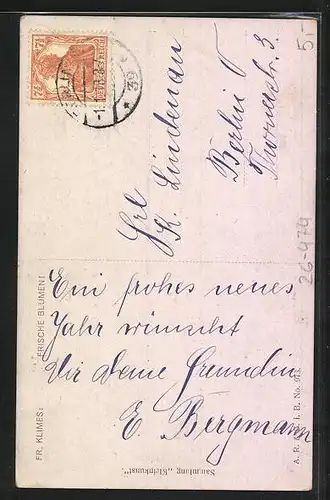 Frl
K. Lindenau
Berlin O
Thornerstr. 3.
Ein frohes neues
Jahr wünscht
Dir Deine Freundin
E. Bergmann
FR. KLIMES: FRISCHE BLUMEN!
Sammlung „Kleinkunst".
7½
5,-
26-479